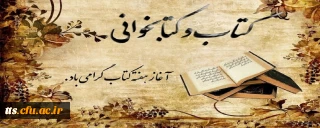 کتاب و کتابخوانی
آغاز هفته کتاب گرامی باد.
tts.cfu.ac.ir